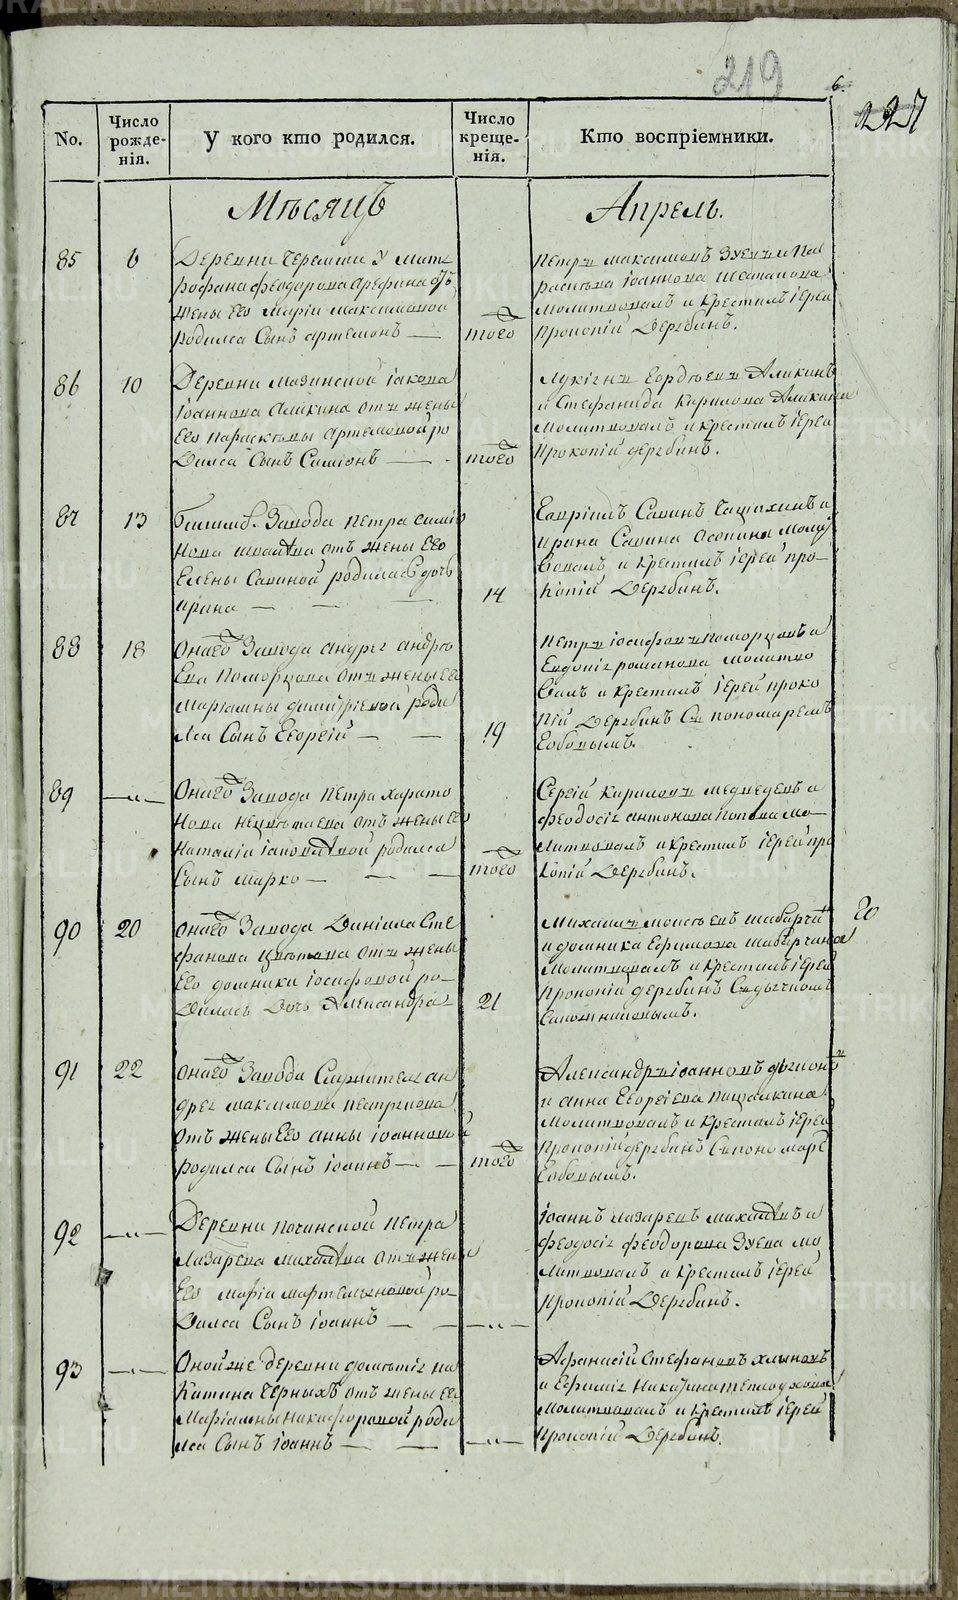 219
6.
227
No.
Число рожде-нія.
У кого кто родился.
Число креще-нія.
Кто воспріемники.
Мѣсяцъ
Апрель.
85
6
Деревни Черемши у Мит
рофана Феодорова Арефина отъ
жены его Маріи Максимовой
родился сынъ Артемонъ —
того
Петръ Максимовъ Зуевъ и Па
раскева Іоаннова
Молитвовалъ и крестилъ Іерей
Прокопій Дерябинъ.
86
10
Деревни Мазинской Іакова
Іоаннова Аликина отъ жены
его Параскевы Артемовой ро
дился сынъ Симіонъ — .
того
Аликинъ
и Стефанида Карпова Аликина
Молитвовалъ и крестилъ Іерей
Прокопій Дерябинъ.
87
13
Завода Петра Симіо
нова отъ жены его
Елены Савиной родилась дочь
Ирина — — —
14
Гавріилъ Савинъ и
Ирина Савина Молит
вовалъ и крестилъ Іерей Про-
копій Дерябинъ.
88
18
Онаго Завода Андрея Андре
ева Поморцова отъ жены его
Маріамны Димитріевой роди
лся сынъ Георгій — —
19
Петръ Іосифовъ Поморцовъ и
Евдокія Романова Молитво
валъ и крестилъ Іерей Проко
пій Дерябинъ съ пономаремъ
89
—"—
Онаго Завода Петра Харито
нова отъ жены его
Наталіи Іаковлевой родился
сынъ Марко — — —
того
Сергій Кириловъ Медведевъ и
Феодосія Антонова Попова Мо-
литвовалъ и крестилъ Іерей Про
копій Дерябинъ.
90
20
Онаго Завода Даніила Сте
фанова отъ жены
его Домники Іосифовой ро-
дилась дочь Александра
21
20
Михаилъ Моисеевъ
и Домника Ефимова
Молитвовалъ и крестилъ Іерей
Прокопій Дерябинъ съ дьячкомъ
Сапожниковымъ.
91
22
Онаго Завода Служителя Ан
дрея Максимова
отъ жены его Анны Іоанновой
родился сынъ Іоаннъ — —
того
Александръ Іоанновъ
и Анна Георгіева
Молитвовалъ и крестилъ Іерей
Прокопій Дерябинъ съ понамаре
92
—"—
Деревни Починской Петра
Лазарева Михалева отъ жены
его Марфы ро-
дился сынъ Іоаннъ — —
—"—
Іоаннъ Лазаревъ Михалевъ и
Феодосія Феодорова Зуева Мо
литвовалъ и крестилъ Іерей
Прокопій Дерябинъ.
93
—"—
Оной же деревни Дометія Ни
китина Черныхъ отъ жены его
Маріамны Никифоровой роди
лся сынъ Іоаннъ — —
—"—
Афанасій Стефановъ Хлыновъ
и Ефимія Никитина
Молитвовалъ и крестилъ Іерей
Прокопій Дерябинъ.
METRIKI.GASO-URAL.RU